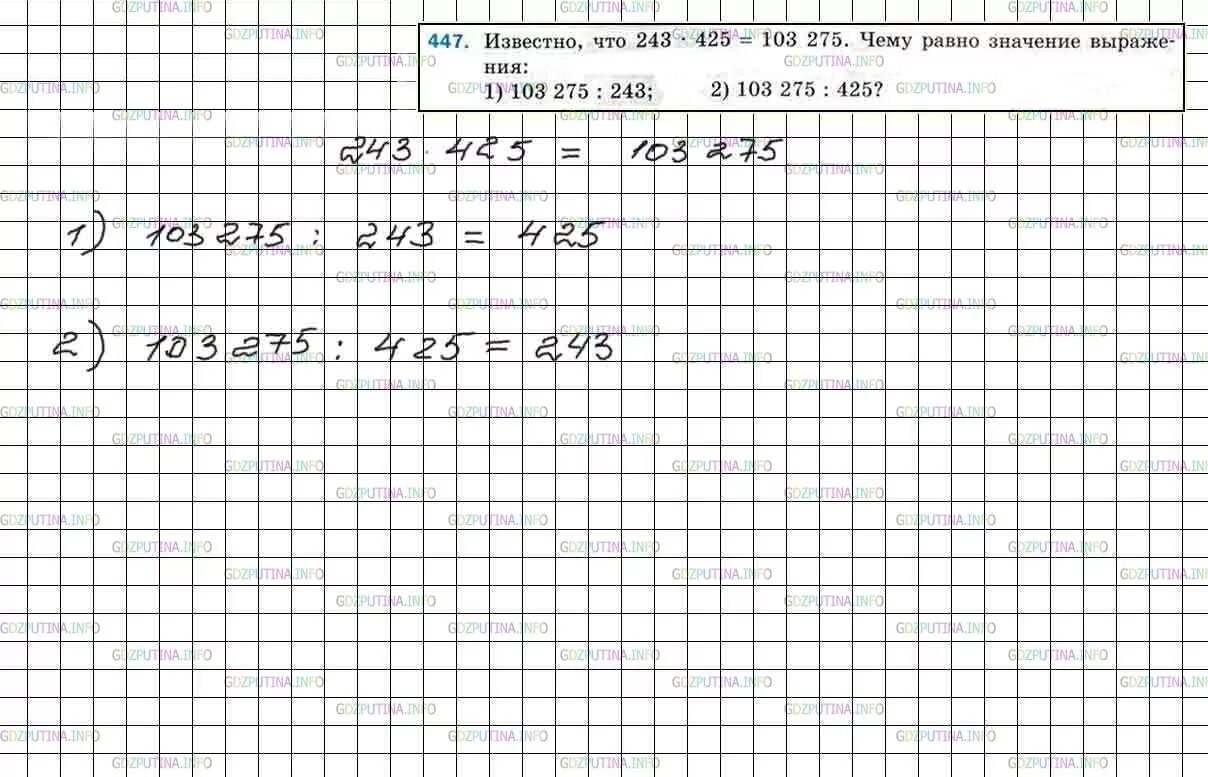 447. Известно, что 243 · 425 = 103 275. Чему равно значение выраже-
ния:
1) 103 275 : 243; 2) 103 275 : 425?
243 · 425 = 103 275
1) 103 275 : 243 = 425
2) 103 275 : 425 = 243
GDZPUTINA.INFO